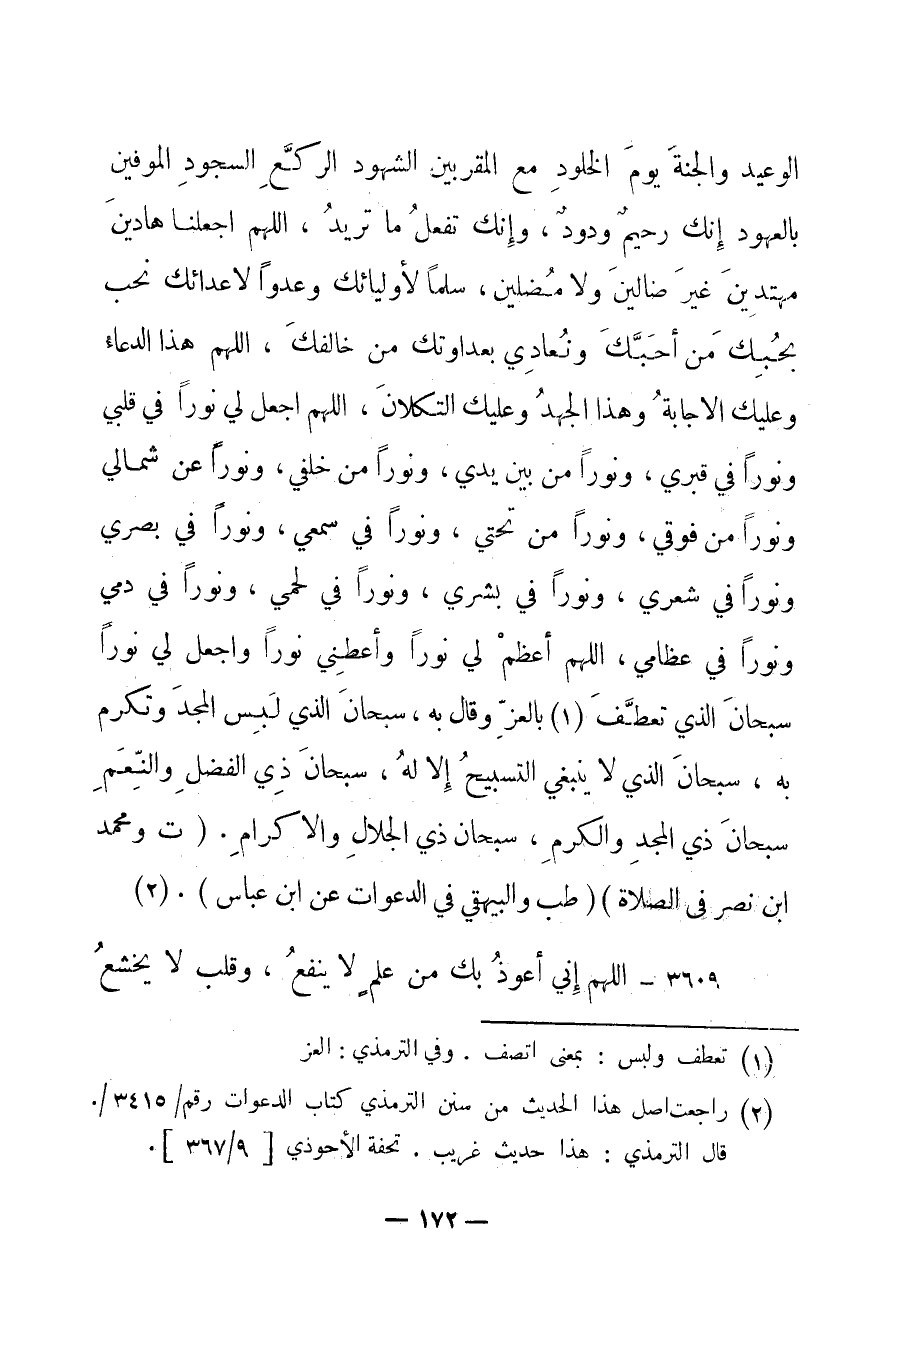 الوعيد والجنةَ يومَ الخلودِ مع المقربين الشهود الركَّعِ السجودِ الموفين
بالعهود إنك رحيمٌ ودودٌ ، وإنك تفعلُ ما تريدُ ، اللهم اجعلنا هادينَ
مهتدينَ غيرَ ضالينَ ولا مُضلين ، سلماً لأوليائك وعدواً لاعدائك نحب
بحُبِك مَن أحَبَّكَ ونُعادِي بعداوتك من خالفكَ ، اللهم هذا الدعاء
وعليك الاجابةُ وهذا الجهدُ وعليك التكلانَ ، اللهم اجعل لي نوراً في قلبي
ونوراً في قبري ، ونوراً من بين يدي ، ونوراً من خلفي ، ونوراً عن شمالي
ونوراً من فوقي ، ونوراً من تحتي ، ونوراً في سمعي ، ونوراً في بصري
ونوراً في شعري ، ونوراً في بشري ، ونوراً في لحمي ، ونوراً في دمي
ونوراً في عظامي ، اللهم أعظمْ لي نوراً وأعطِني نوراً واجعل لي نوراً
سبحانَ الذي تعطَّفَ (١) بالعزِّ وقال به ، سبحانَ الذي لَبِس المجدَ وتكرم
به ، سبحانَ الذي لا ينبغي التسبيحُ إلا لهُ ، سبحانَ ذِي الفضلِ والنِّعَمِ
سبحانَ ذي المجدِ والكرمِ ، سبحان ذي الجلالِ والاكرامِ . ( ت ومحمد
ابن نصر في الصلاة ) ( طب والبيهقي في الدعوات عن ابن عباس ) . (٢)
٣٦٠٩ – اللهم إني أعوذُ بك من علمٍ لا ينفعُ ، وقلب لا يخشعُ
(١) تعطف ولبس : بمعنى اتصف . وفي الترمذي : العز
(٢) راجعت اصل هذا الحديث من سنن الترمذي كتاب الدعوات رقم/ ٣٤١٥ /.
قال الترمذي : هذا حديث غريب . تحفة الأحوذي [ ٩/ ٣٦٧ ] .
– ١٧٢ –